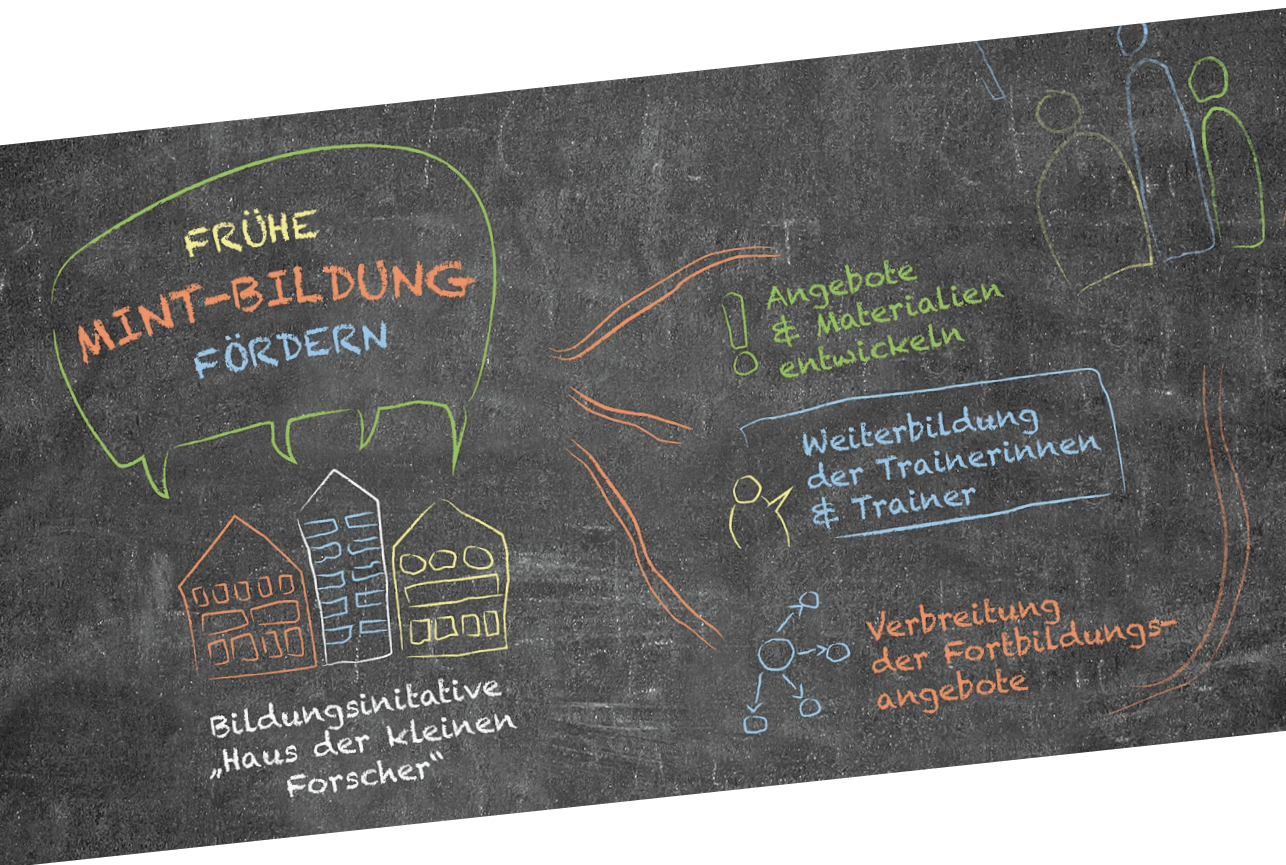 FRÜHE
MINT-BILDUNG
FÖRDERN
Bildungsinitative
„Haus der kleinen
Forscher“
Angebote
& Materialien
entwickeln
Weiterbildung
der Trainerinnen
& Trainer
Verbreitung
der Fortbildungs-
angebote